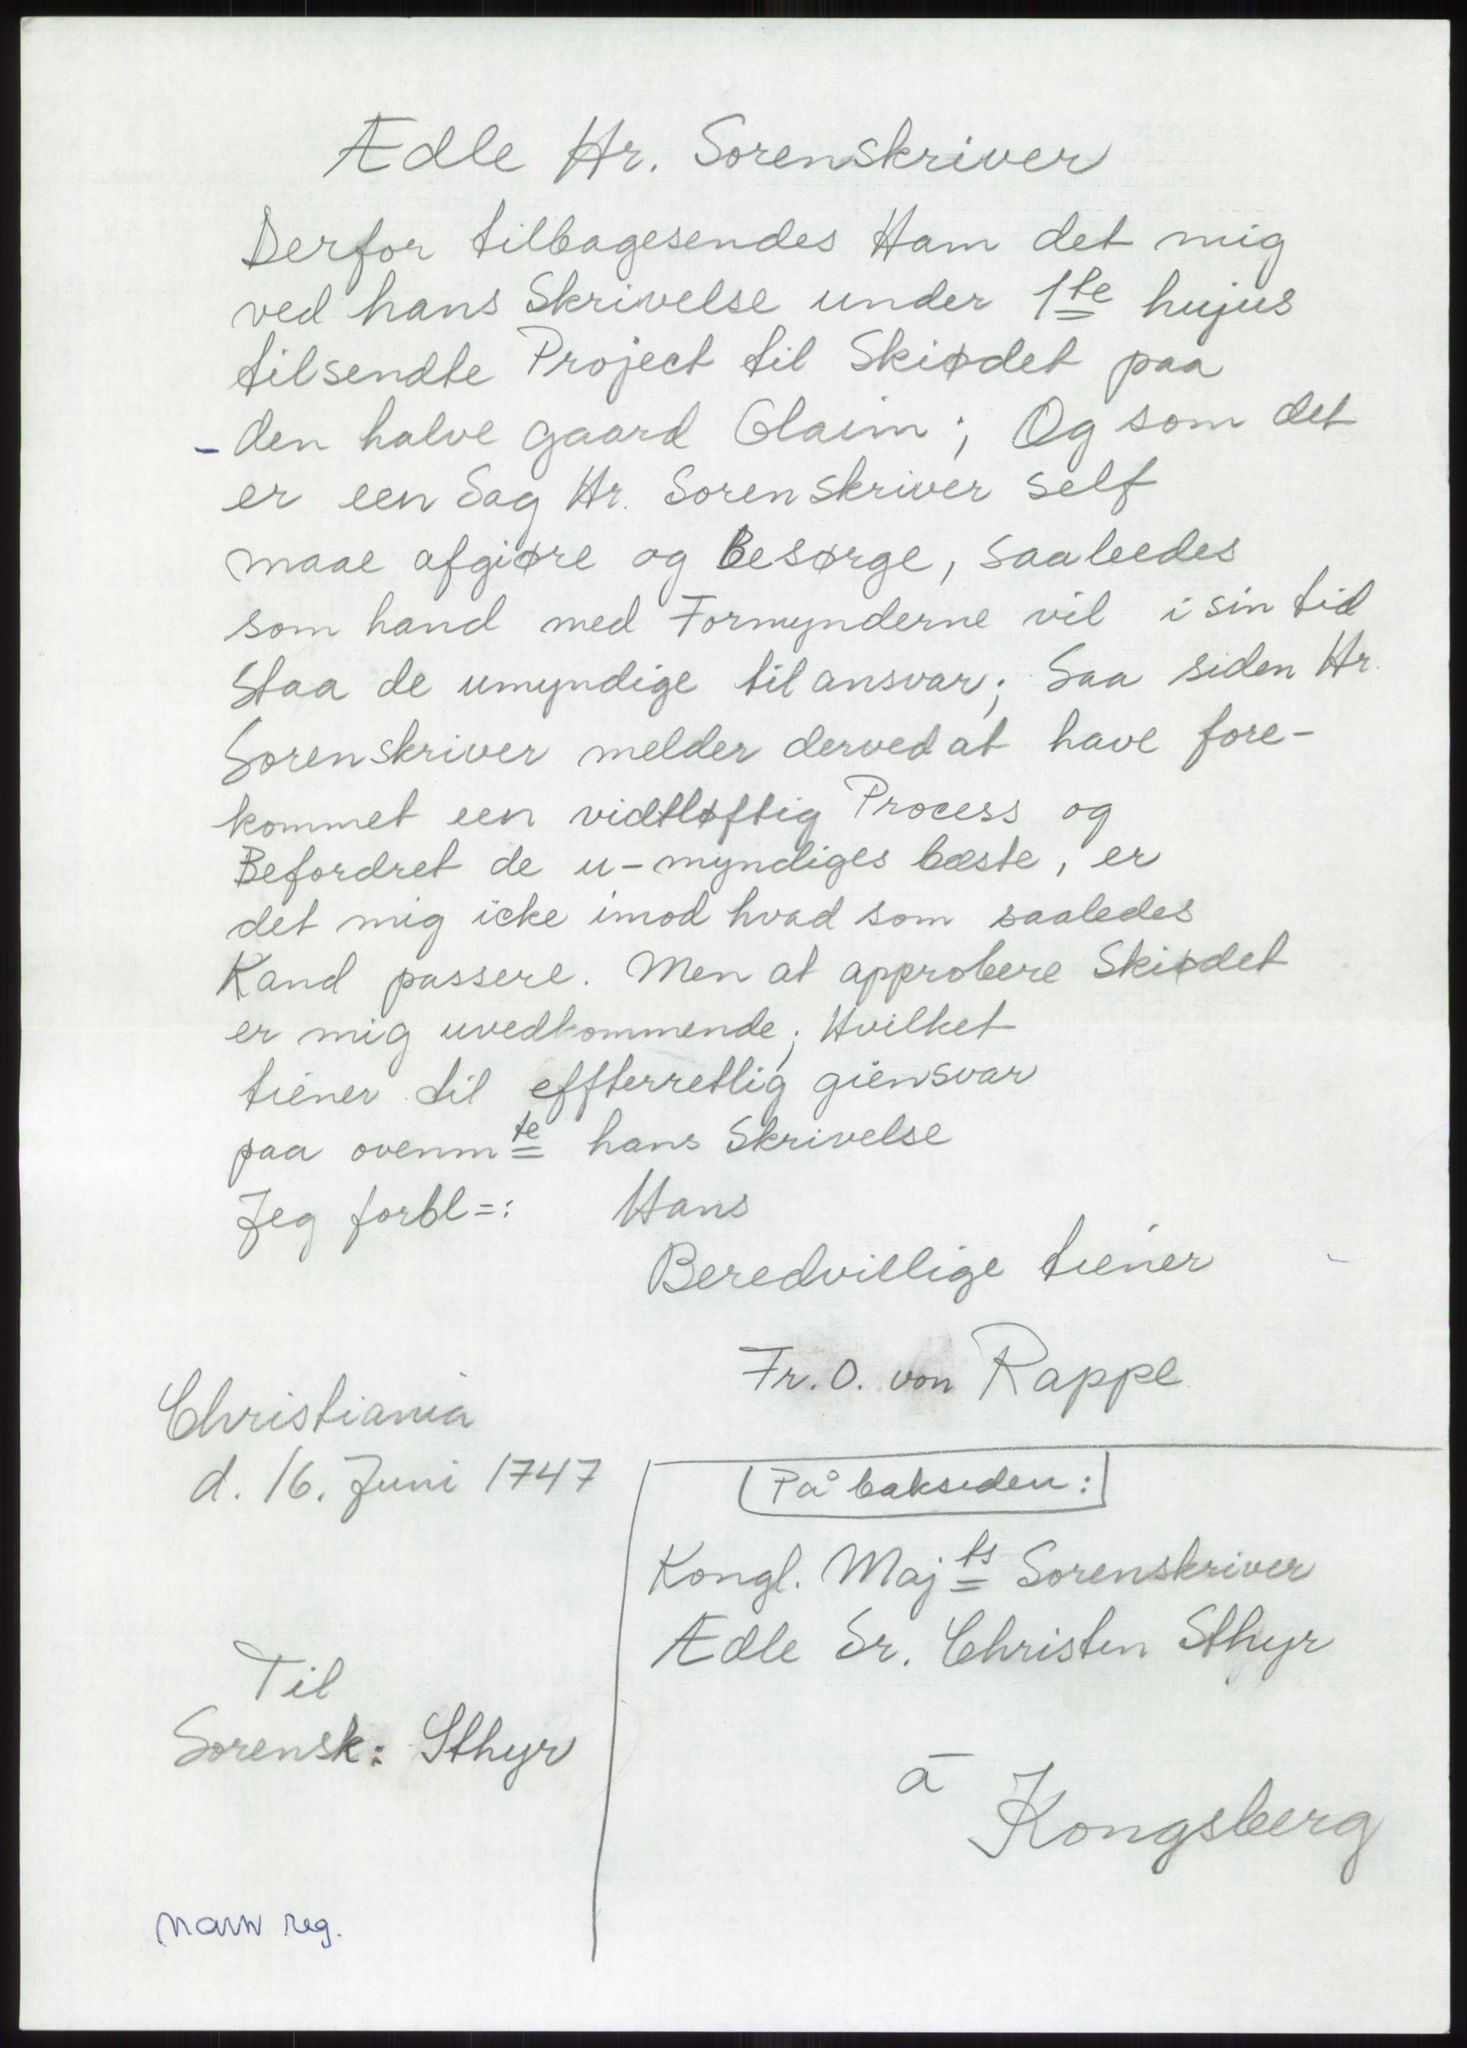 Ædle Hr. Sorenskriver
Derfor tilbagesendes Ham det mig
ved hans Skrivelse under 1te hujus
tilsendte Project til Skiødet paa
- den halve gaard Glaim; Og som det
er een Sag Hr. Sorenskriver self
maae afgiøre og Besørge, saaleedes
som hand med Formynderne vil i sin tid
staa de umyndige til ansvar; Saa siden Hr.
Sorenskriver melder derved at have fore-
kommet een vidtløftig Process og
Befordret de u-myndiges bæste, er
det mig icke imod hvad som saaledes
Kand passere. Men at approbere Skiødet
er mig uvedkommende; Hvilket
tiener til effterretlig giensvar
paa ovenmte hans Skrivelse
Jeg forbl=: Hans
Beredvillige tiener
Fr. O. von Rappe
Christiania
d. 16. Juni 1747
Til
Sorensk: Sthyr
På baksiden:
Kongl. Majts Sorenskriver
Ædle Sr. Christen Sthyr
a
Kongsberg
navn reg.